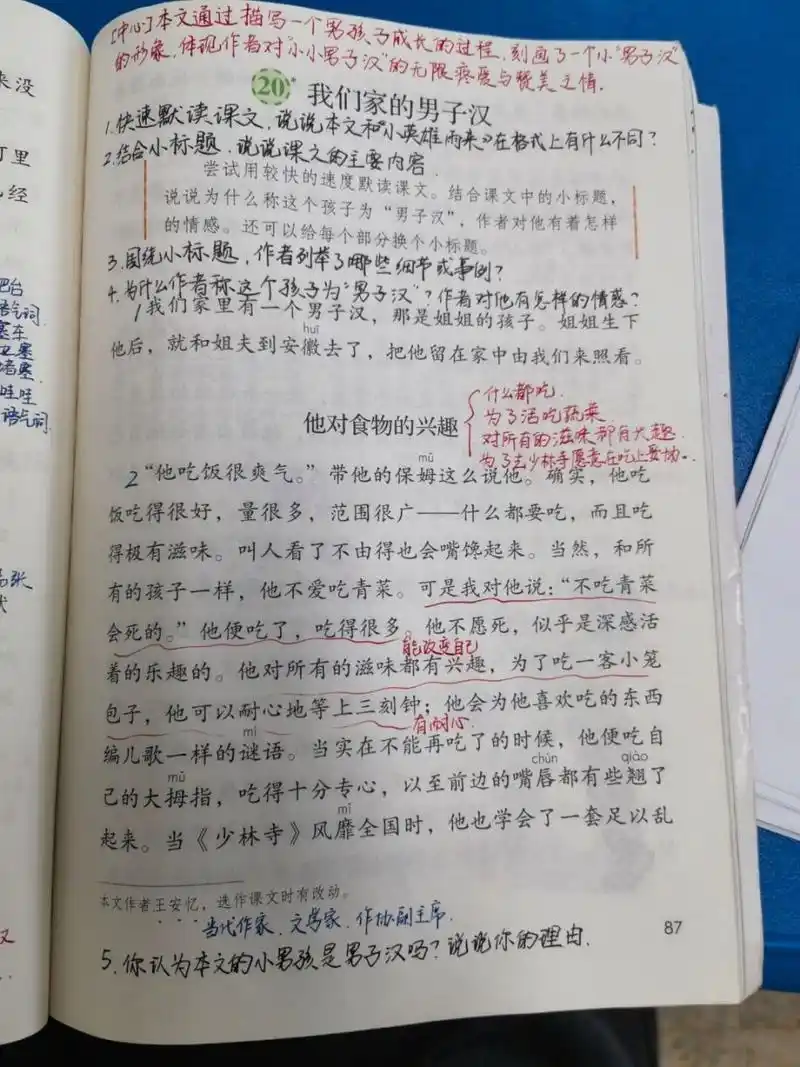 [中心]本文通过描写一个男孩子成长的过程,刻画了一个小"男子汉"
的形象,体现作者对"小小男子汉"的无限疼爱与赞美之情.
20* 我们家的男子汉
1.快速默读课文,说说本文和《小英雄雨来》在格式上有什么不同?
2.结合小标题,说说课文的主要内容.
尝试用较快的速度默读课文。结合课文中的小标题,
说说为什么称这个孩子为“男子汉”,作者对他有着怎样
的情感。还可以给每个部分换个小标题。
3.围绕小标题,作者列举了哪些细节或事例?
4.为什么作者称这个孩子为"男子汉"?作者对他有怎样的情感?
1 我们家里有一个男子汉,那是姐姐的孩子。姐姐生下
huī
他后,就和姐夫到安徽去了,把他留在家中由我们来照看。
他对食物的兴趣
什么都吃.
为了活吃蔬菜
对所有的滋味都有兴趣.
为了去少林寺愿意在吃上妥协.
mǔ
2 “他吃饭很爽气。”带他的保姆这么说他。确实,他吃
饭吃得很好,量很多,范围很广——什么都要吃,而且吃
得极有滋味。叫人看了不由得也会嘴馋起来。当然,和所
有的孩子一样,他不爱吃青菜。可是我对他说:“不吃青菜
会死的。”他便吃了,吃得很多。他不愿死,似乎是深感活
能改变自己
着的乐趣的。他对所有的滋味都有兴趣,为了吃一客小笼
包子,他可以耐心地等上三刻钟;他会为他喜欢吃的东西
有耐心.
mí
编儿歌一样的谜语。当实在不能再吃了的时候,他便吃自
mǔ chún qiào
己的大拇指,吃得十分专心,以至前边的嘴唇都有些翘了
mǐ
起来。当《少林寺》风靡全国时,他也学会了一套足以乱
本文作者王安忆,选作课文时有改动。
当代作家、文学家、作协副主席.
87
5.你认为本文的小男孩是男子汉吗?说说你的理由.
来没
丁里
经
吧台
语气词
塞车
堵塞
哇哇
语气词